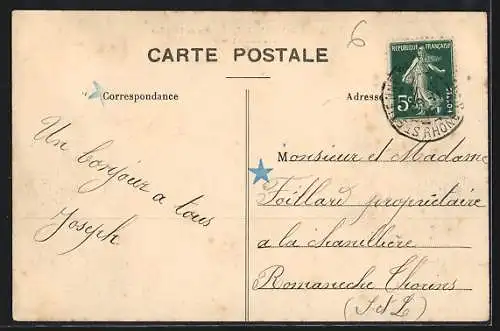 6
CARTE POSTALE
Correspondance
Adresse
REPUBLIQUE FRANÇAISE
5c
RHÔNE
Un bonjour a tous
Joseph
Monsieur et Madame
Foillard propriétaire
a la chanillière
Romaneche Thorins
(S et L)